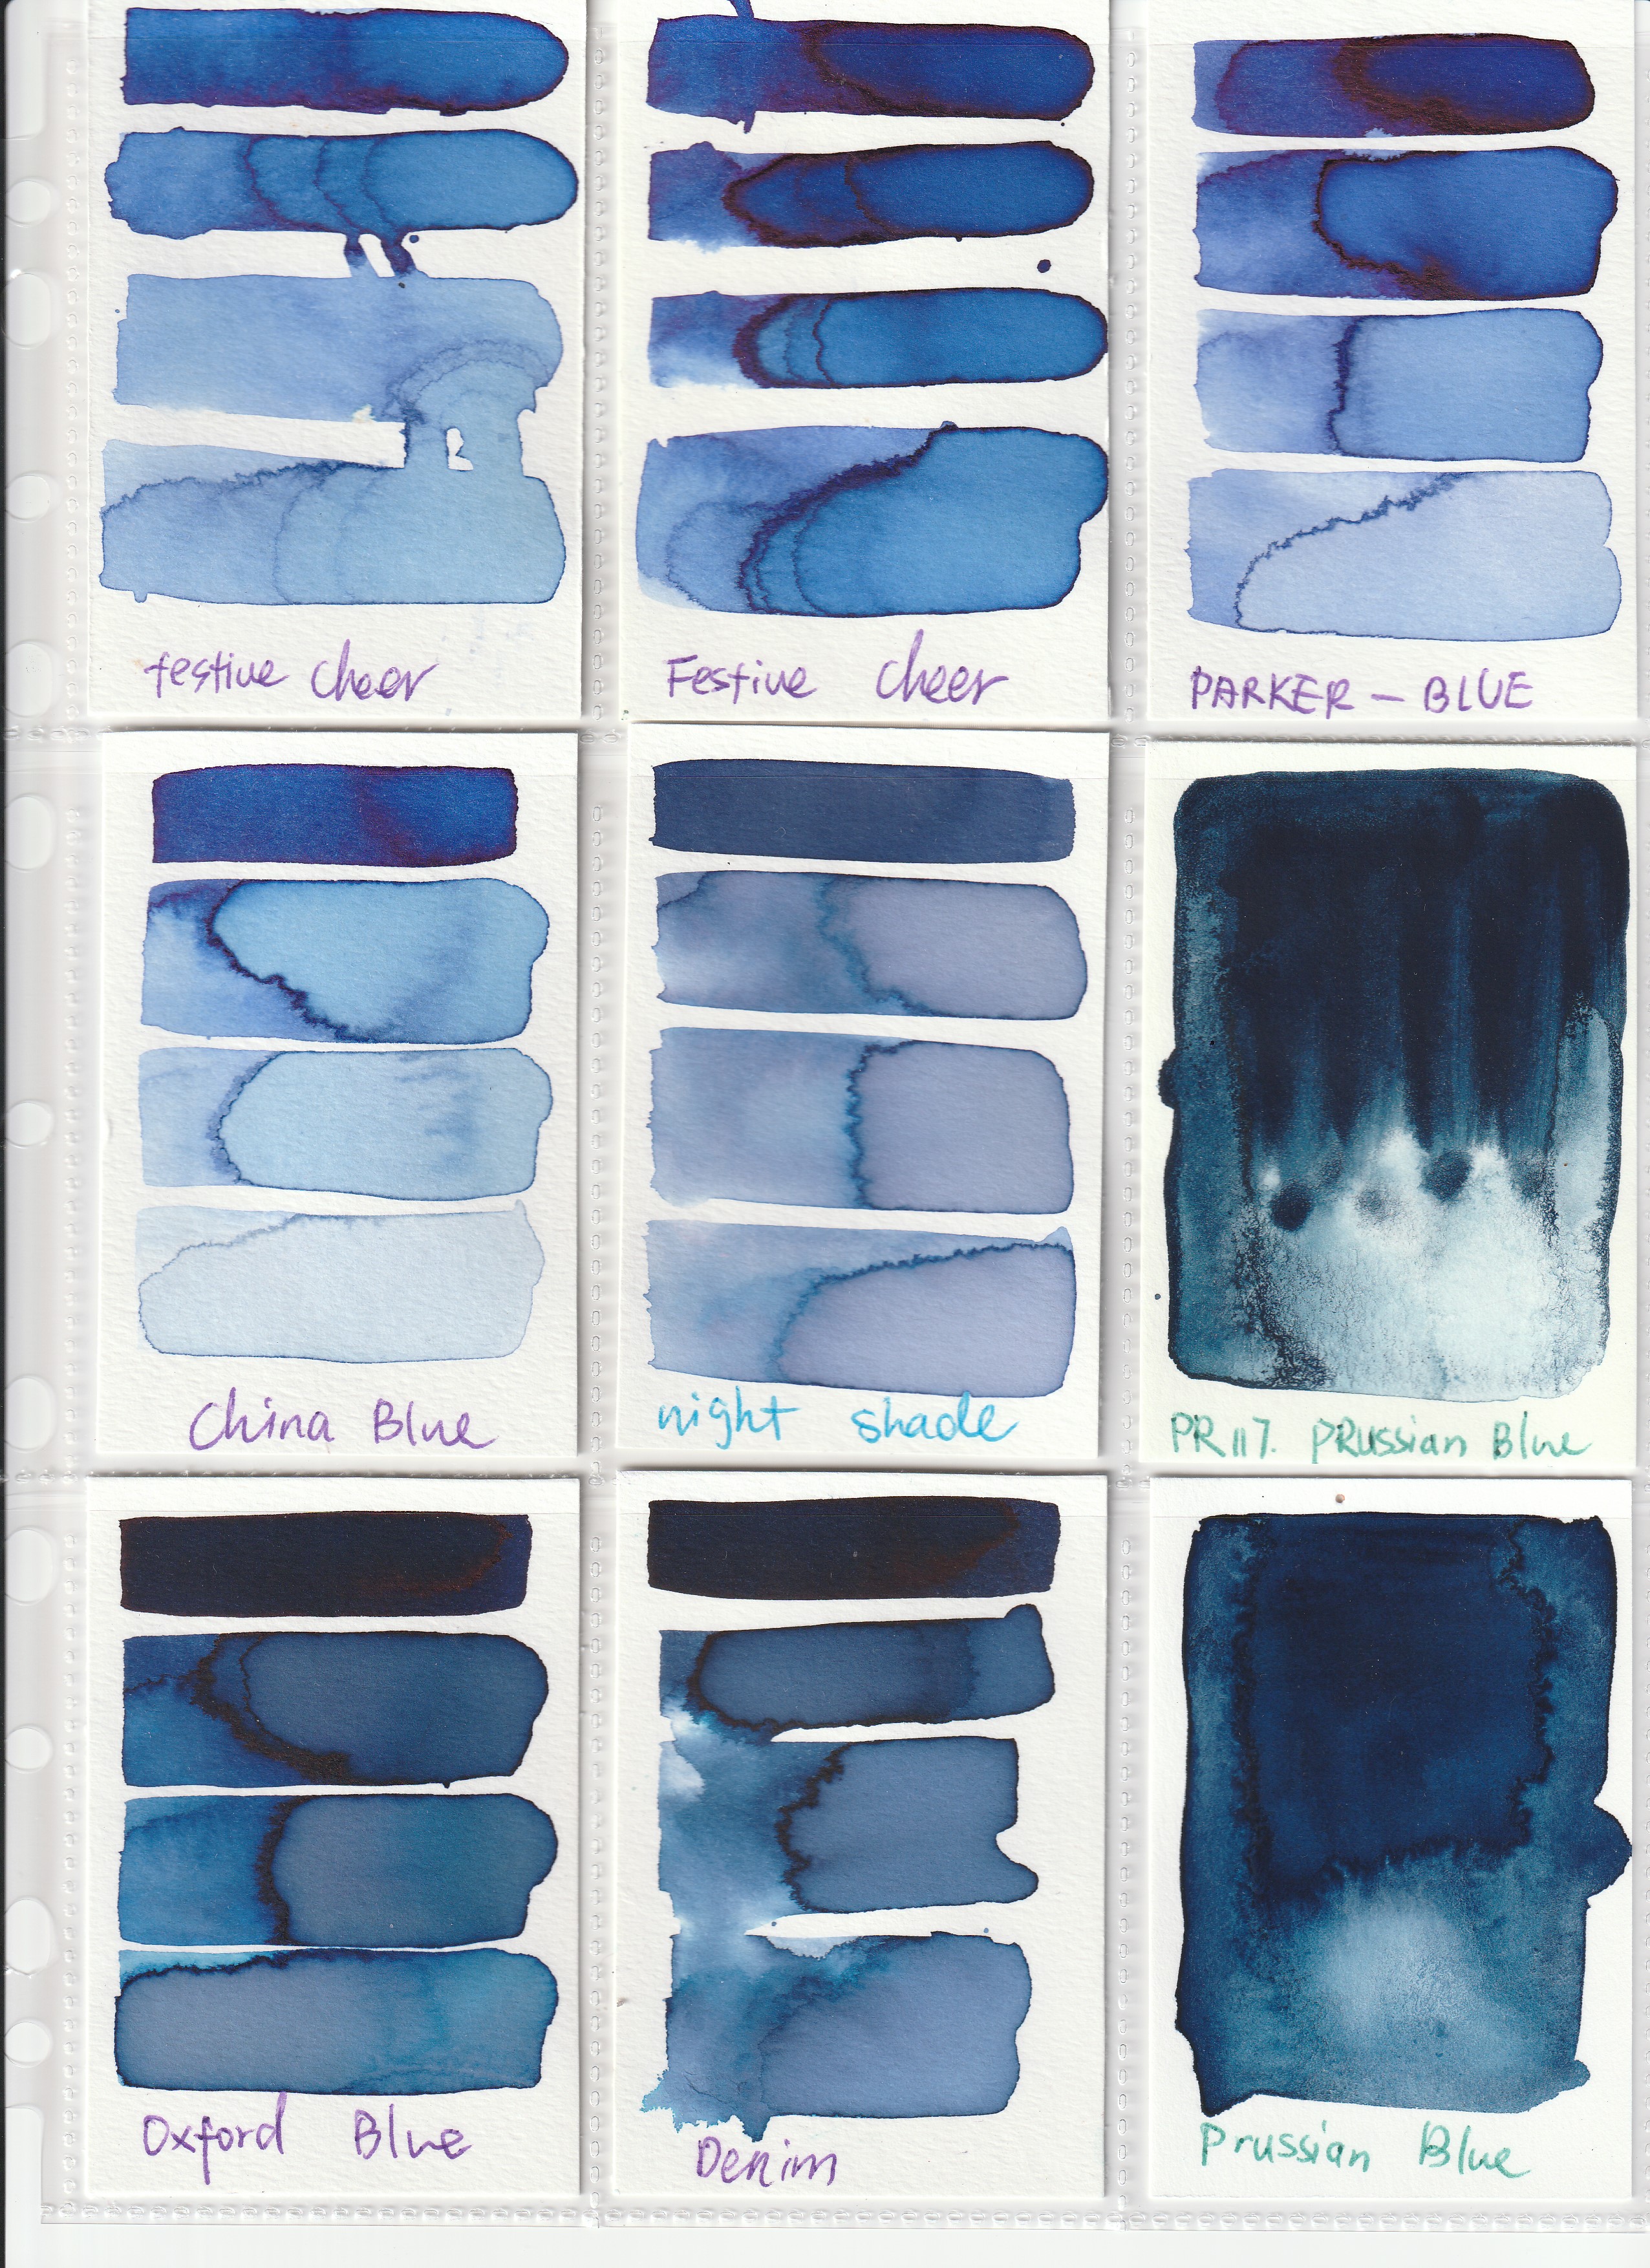 festive cheer
Festive cheer
PARKER - BLUE
China Blue
night shade
PR 117. PRussian Blue
Oxford Blue
Denim
Prussian Blue